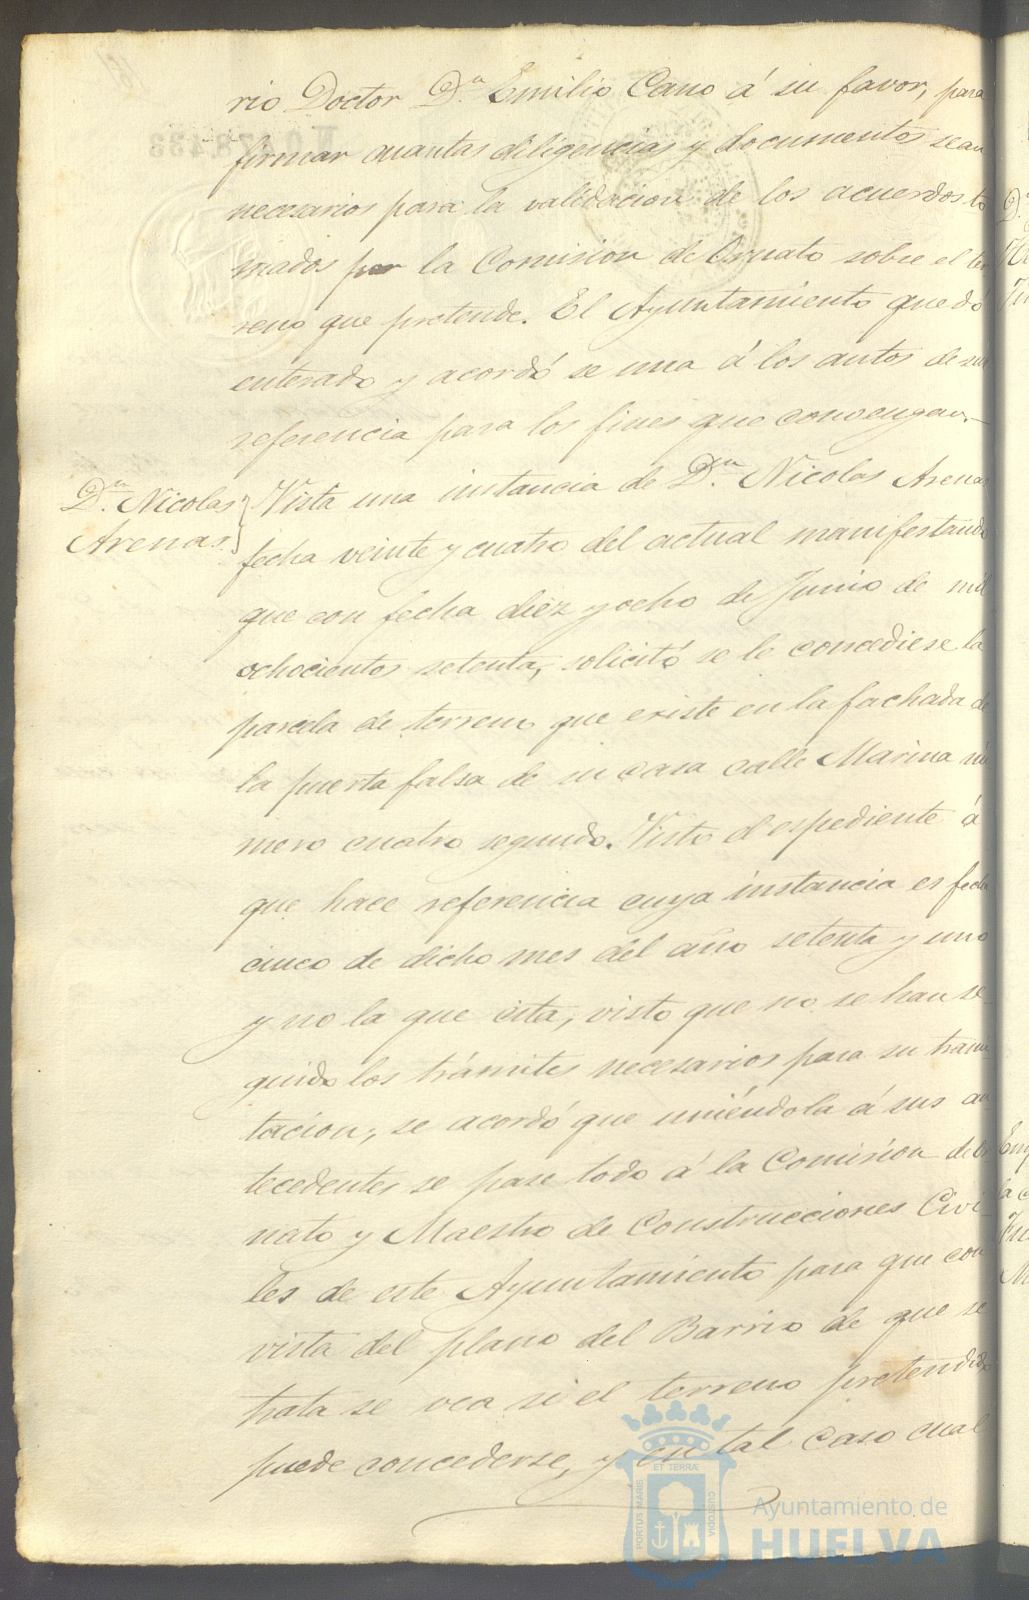 rio Doctor Dn. Emilio Cano á su favor, para
firmar cuantas diligencias y documentos sean
necesarios para la validacion de los acuerdos to
mados por la Comision de Ornato sobre el ter
reno que pretende. El Ayuntamiento quedó
enterado y acordó se una á los autos de su
referencia para los fines que convengan.
Dn. Nicolas
Arenas
Vista una instancia de Dn. Nicolas Arenas
fecha veinte y cuatro del actual manifestando
que con fecha diez y ocho de Junio de mil
ochocientos setenta, solicitó se le concediese la
parcela de terreno que existe en la fachada de
la puerta falsa de su casa calle Marina nú
mero cuatro segundo. Visto el espediente á
que hace referencia cuya instancia es fecha
cinco de dicho mes del año setenta y uno
y no la que cita, visto que no se han se
guido los trámites necesarios para su trami
tacion, se acordó que uniéndola á sus an
tecedentes se pase todo á la Comision de Or
nato y Maestro de Construcciones Civi-
les de este Ayuntamiento para que con
vista del plano del Barrio de que se
trata se vea si el terreno pretendido
puede concederse, y en tal caso cual
PORTUS MARIS
ET TERRÆ
CUSTODIA
Ayuntamiento de
HUELVA